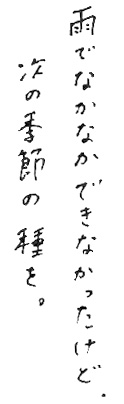 雨でなかなかできなかったけど.
次の季節の種を。